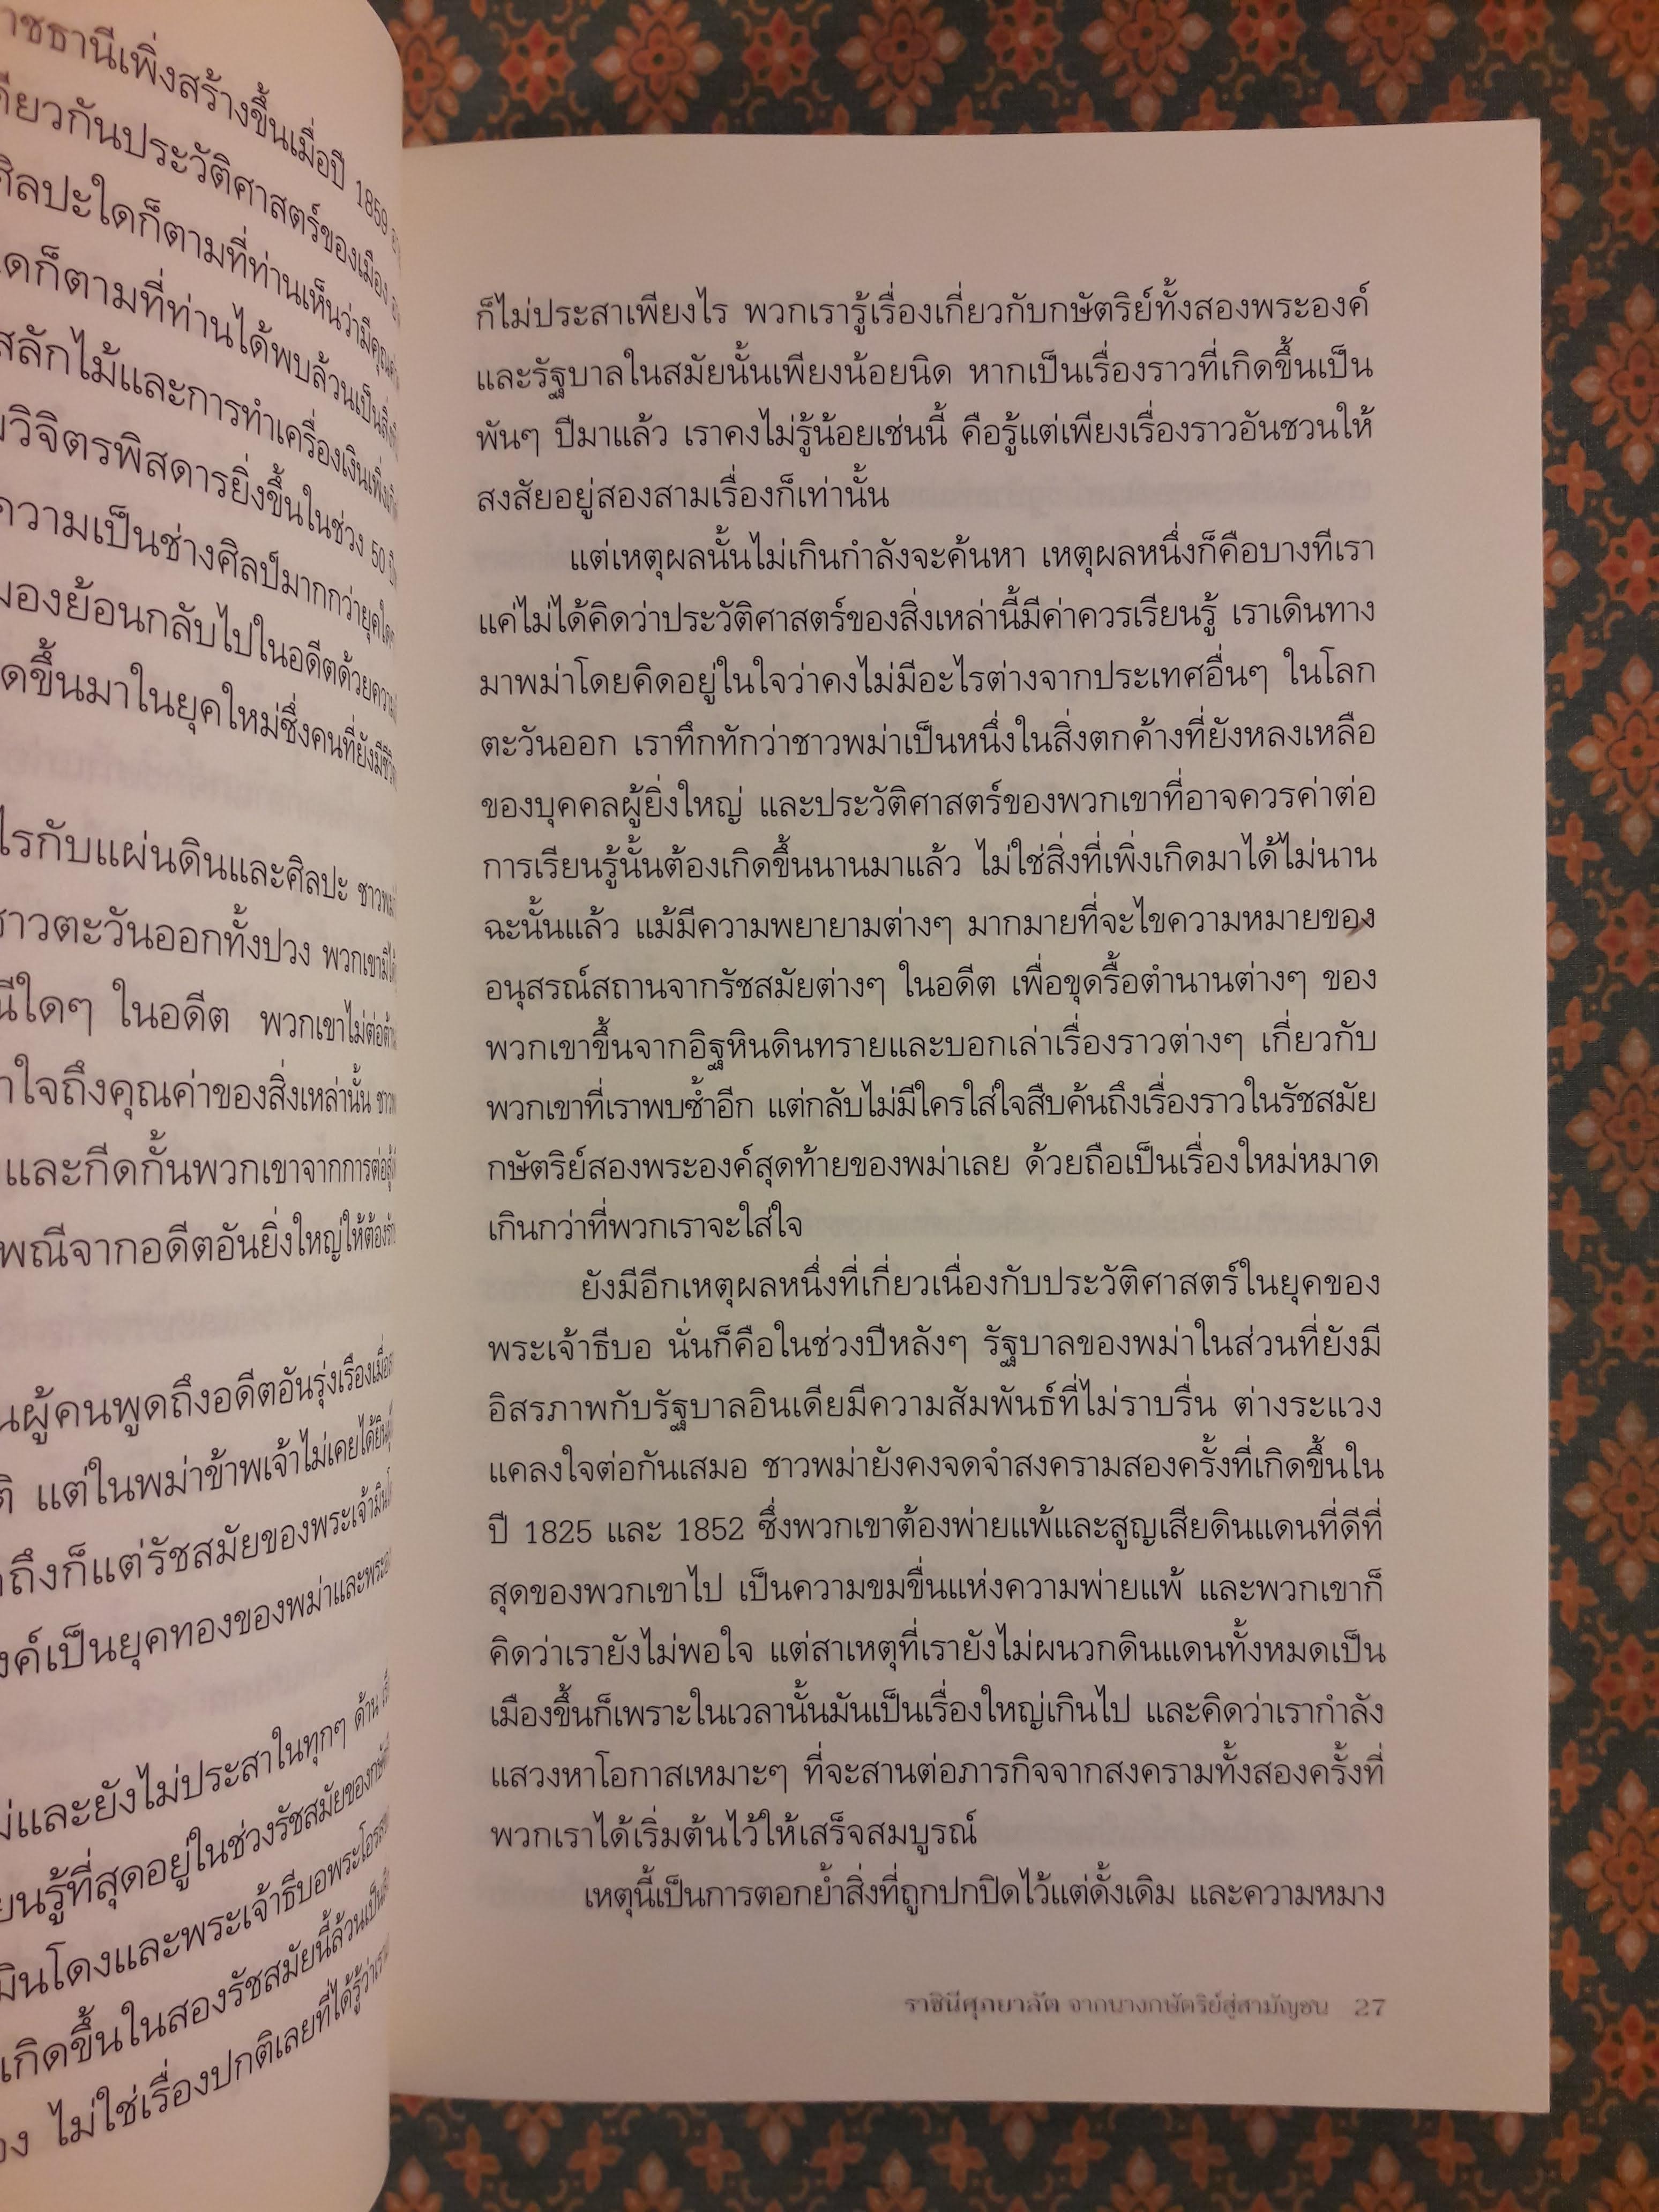 าชธานีเพิ่งสร้างขึ้นเมื่อปี 1859
ดียวกันประวัติศาสตร์ของเมือง
ศิลปะใดก็ตามที่ท่านเห็นว่ามีคุณค่า
ดก็ตามที่ท่านได้พบล้วนเป็นสิ่งที่
สลักไม้และการทำเครื่องเงินเพิ่ง
วิจิตรพิสดารยิ่งขึ้นในช่วง 50 ปี
ความเป็นช่างศิลป์มากกว่ายุคใด
มองย้อนกลับไปในอดีตด้วยความ
ดขึ้นมาในยุคใหม่ซึ่งคนที่ยังมีชีวิต
ไรกับแผ่นดินและศิลปะ ชาวพม่า
ชาวตะวันออกทั้งปวง พวกเขามิได้
นีใดๆ ในอดีต พวกเขาไม่ต่อต้าน
าใจถึงคุณค่าของสิ่งเหล่านั้น ชาว
และกีดกั้นพวกเขาจากการต่อสู้
พณีจากอดีตอันยิ่งใหญ่ให้ต้อง
นผู้คนพูดถึงอดีตอันรุ่งเรืองเมื่อ
ติ แต่ในพม่าข้าพเจ้าไม่เคยได้ยิน
ถึงก็แต่รัชสมัยของพระเจ้ามิน
งค์เป็นยุคทองของพม่าและพระ
ม่และยังไม่ประสาในทุกๆ ด้าน
ยนรู้ที่สุดอยู่ในช่วงรัชสมัยของ
มินโดงและพระเจ้าธีบอพระโอรส
เกิดขึ้นในสองรัชสมัยนี้ล้วนเป็น
อง ไม่ใช่เรื่องปกติเลยที่ได้รู้ว่า
ก็ไม่ประสาเพียงไร พวกเรารู้เรื่องเกี่ยวกับกษัตริย์ทั้งสองพระองค์
และรัฐบาลในสมัยนั้นเพียงน้อยนิด หากเป็นเรื่องราวที่เกิดขึ้นเป็น
พันๆ ปีมาแล้ว เราคงไม่รู้น้อยเช่นนี้ คือรู้แต่เพียงเรื่องราวอันชวนให้
สงสัยอยู่สองสามเรื่องก็เท่านั้น
แต่เหตุผลนั้นไม่เกินกำลังจะค้นหา เหตุผลหนึ่งก็คือบางทีเรา
แค่ไม่ได้คิดว่าประวัติศาสตร์ของสิ่งเหล่านี้มีค่าควรเรียนรู้ เราเดินทาง
มาพม่าโดยคิดอยู่ในใจว่าคงไม่มีอะไรต่างจากประเทศอื่นๆ ในโลก
ตะวันออก เราทึกทักว่าชาวพม่าเป็นหนึ่งในสิ่งตกค้างที่ยังหลงเหลือ
ของบุคคลผู้ยิ่งใหญ่ และประวัติศาสตร์ของพวกเขาที่อาจควรค่าต่อ
การเรียนรู้นั้นต้องเกิดขึ้นนานมาแล้ว ไม่ใช่สิ่งที่เพิ่งเกิดมาได้ไม่นาน
ฉะนั้นแล้ว แม้มีความพยายามต่างๆ มากมายที่จะไขความหมายของ
อนุสรณ์สถานจากรัชสมัยต่างๆ ในอดีต เพื่อขุดรื้อตำนานต่างๆ ของ
พวกเขาขึ้นจากอิฐหินดินทรายและบอกเล่าเรื่องราวต่างๆ เกี่ยวกับ
พวกเขาที่เราพบซ้ำอีก แต่กลับไม่มีใครใส่ใจสืบค้นถึงเรื่องราวในรัชสมัย
กษัตริย์สองพระองค์สุดท้ายของพม่าเลย ด้วยถือเป็นเรื่องใหม่หมาด
เกินกว่าที่พวกเราจะใส่ใจ
ยังมีอีกเหตุผลหนึ่งที่เกี่ยวเนื่องกับประวัติศาสตร์ในยุคของ
พระเจ้าธีบอ นั่นก็คือในช่วงปีหลังๆ รัฐบาลของพม่าในส่วนที่ยังมี
อิสรภาพกับรัฐบาลอินเดียมีความสัมพันธ์ที่ไม่ราบรื่น ต่างระแวง
แคลงใจต่อกันเสมอ ชาวพม่ายังคงจดจำสงครามสองครั้งที่เกิดขึ้นใน
ปี 1825 และ 1852 ซึ่งพวกเขาต้องพ่ายแพ้และสูญเสียดินแดนที่ดีที่
สุดของพวกเขาไป เป็นความขมขื่นแห่งความพ่ายแพ้ และพวกเขาก็
คิดว่าเรายังไม่พอใจ แต่สาเหตุที่เรายังไม่ผนวกดินแดนทั้งหมดเป็น
เมืองขึ้นก็เพราะในเวลานั้นมันเป็นเรื่องใหญ่เกินไป และคิดว่าเรากำลัง
แสวงหาโอกาสเหมาะๆ ที่จะสานต่อภารกิจจากสงครามทั้งสองครั้งที่
พวกเราได้เริ่มต้นไว้ให้เสร็จสมบูรณ์
เหตุนี้เป็นการตอกย้ำสิ่งที่ถูกปกปิดไว้แต่ดั้งเดิม และความหมาง
ราชินีศุภยาลัต จากนางกษัตริย์สู่สามัญชน 27